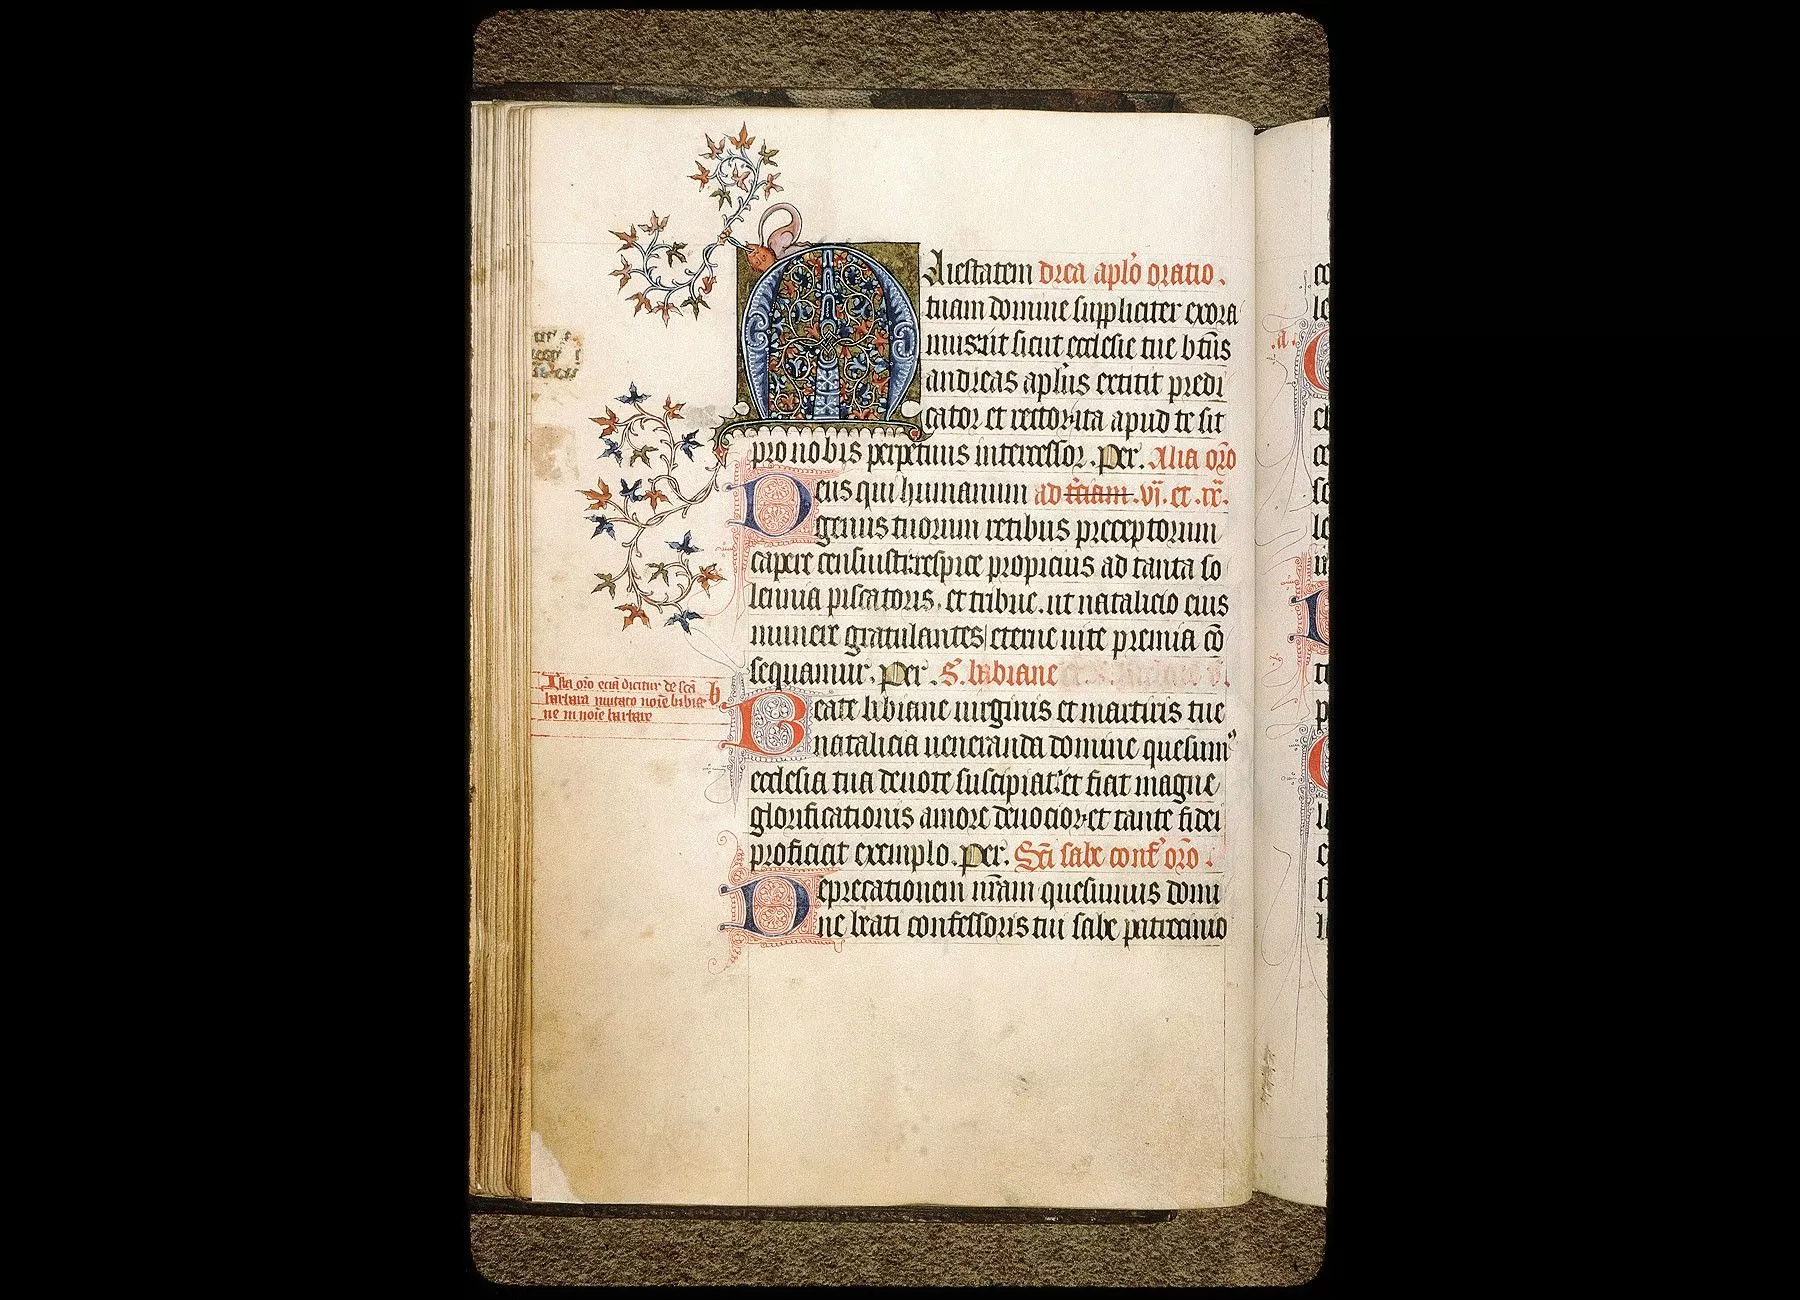 Maiestatem drea aplō oratio .
tuam domine suppliciter exora
mus. ut sicut ecclesie tue btūs
andreas aplūs extitit predi
cator et rector. ita apud te sit
pro nobis perpetuus intercessor. Per. Alia orō
Deus qui humanum ad .vj. et .ix.
genus tuorum retibus preceptorum
capere censuisti. respice propicius ad tanta so
lennia piscatoris. et tribue. ut natalicio eius
munere gratulantes eterne uite premia cō
sequamur. Per. S. bibiane
Beate bibiane uirginis et martiris tue
natalicia ueneranda domine quesumꝰ
ecclesia tua deuote suscipiat. et fiat magne
glorificationis amore deuocior. et tante fidei
proficiat exemplo. Per. Scī sabe conf' orō .
Deprecationem nr̄am quesumus domi
ne beati confessoris tui sabe patrocinio
Ista orō eciā dicitur de scā
barbara mutato noīe bibia
ne in noīe barbare
b